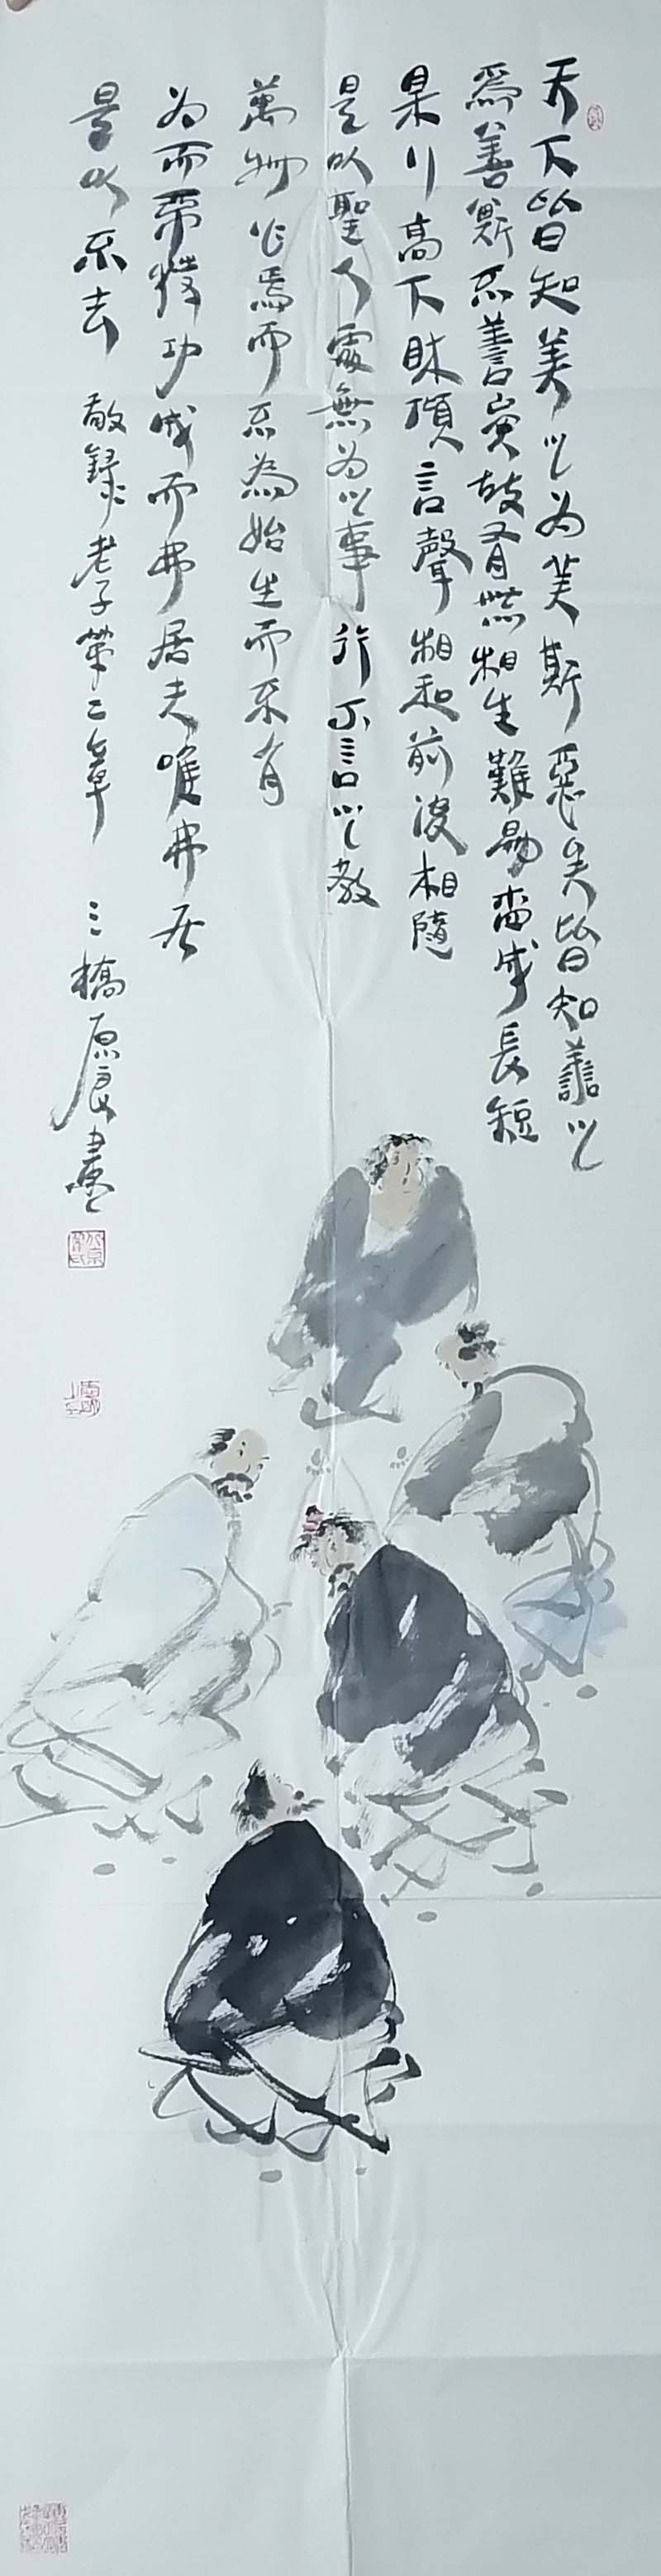 天下皆知美之为美斯惡矣皆知善之
為善斯不善矣故有無相生難易成長短
高下聲相和前後相隨
是以聖人處無为之事行不言之教
萬物作焉而不為始生而不有
为而不功成而弗居夫唯弗居
是以不去 敬錄老子第二章 三橋原畫